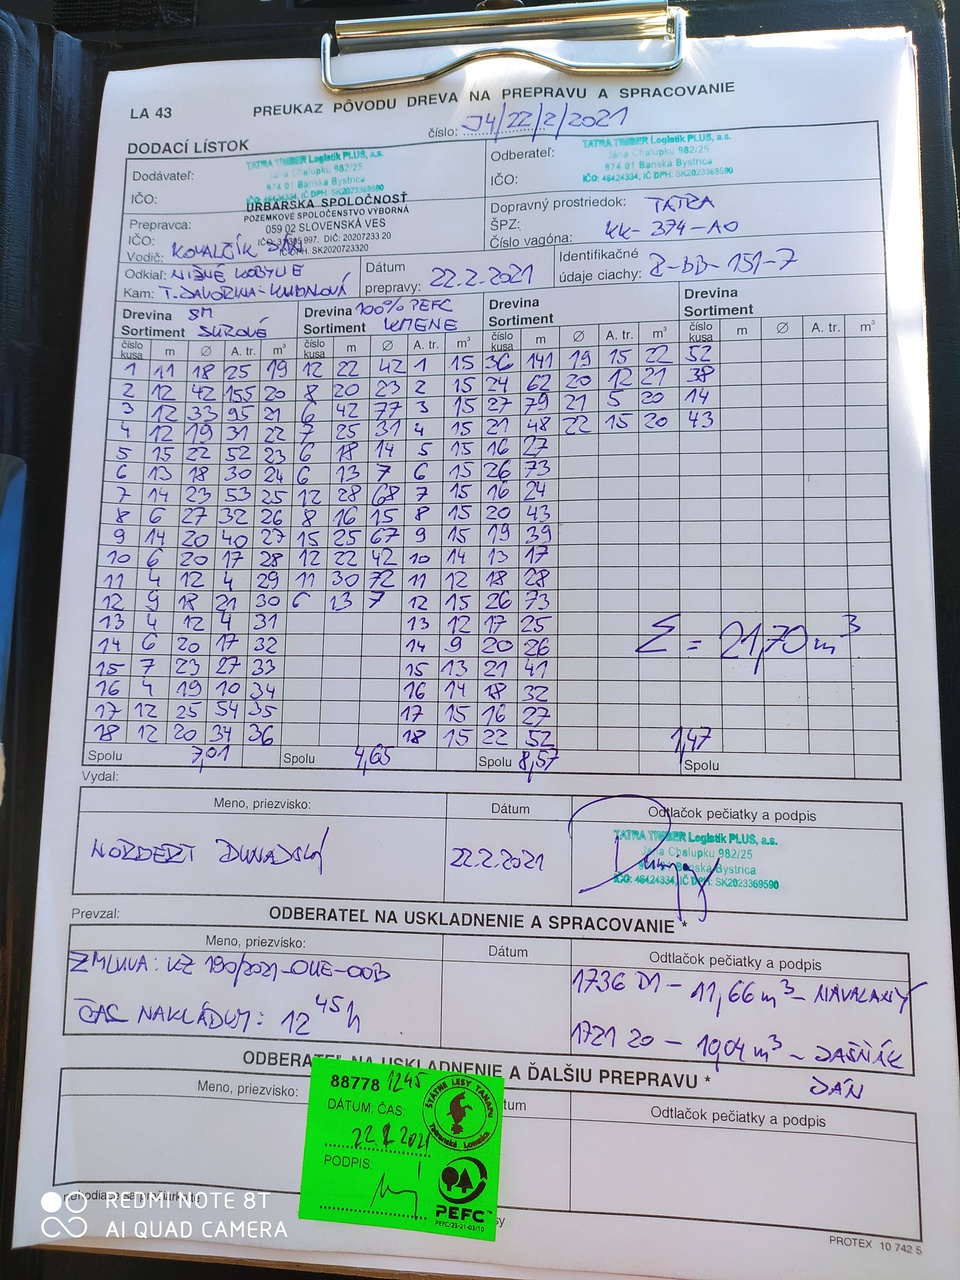 LA 43
PREUKAZ PÔVODU DREVA NA PREPRAVU A SPRACOVANIE
číslo: J4/22/2/2021
DODACÍ LÍSTOK
Dodávateľ:
TATRA TIMBER Logistik PLUS, a.s.
Jána Chalupku 982/25
974 01 Banská Bystrica
IČO: 46424334, IČ DPH: SK2023369590
IČO:
Odberateľ:
TATRA TIMBER Logistik PLUS, a.s.
Jána Chalupku 982/25
974 01 Banská Bystrica
IČO: 46424334, IČ DPH: SK2023369590
IČO:
URBÁRSKA SPOLOČNOSŤ
POZEMKOVÉ SPOLOČENSTVO VÝBORNÁ
059 02 SLOVENSKÁ VES
DIČ: 20207233 20
IČ DPH: SK2020723320
Prepravca:
IČO:
Vodič: KOVALČÍK JÁN
Dopravný prostriedok: TATRA
ŠPZ: KK-374-AO
Číslo vagóna:
Odkiaľ: NIŽNÉ KOBYLIE
Kam: T. JAVORINA-
Dátum
prepravy: 22.2.2021
Identifikačné
údaje ciachy: Z-BB-151-7
Drevina SM
Sortiment SUROVÉ
Drevina 100% PEFC
Sortiment KMENE
Drevina
Sortiment
Drevina
Sortiment
číslo kusa m ∅ A. tr. m³ číslo kusa m ∅ A. tr. m³ číslo kusa m ∅ A. tr. m³ číslo kusa m ∅ A. tr. m³
1 11 18 25 19 12 22 42 1 15 36 141 19 15 22 52
2 12 42 155 20 8 20 23 2 15 24 62 20 12 21 38
3 12 33 95 21 6 42 77 3 15 27 79 21 5 20 14
4 12 19 31 22 7 25 31 4 15 21 48 22 15 20 43
5 15 22 52 23 6 18 14 5 15 16 27
6 13 18 30 24 6 13 7 6 15 26 73
7 14 23 53 25 12 28 68 7 15 16 24
8 6 27 32 26 8 16 15 8 15 20 43
9 14 20 40 27 15 25 67 9 15 19 39
10 6 20 17 28 12 22 42 10 14 13 17
11 4 12 4 29 11 30 72 11 12 18 28
12 9 18 21 30 6 13 7 12 15 26 73
13 4 12 4 31 13 12 17 25
14 6 20 17 32 14 9 20 26
15 7 23 27 33 15 13 21 41
16 4 19 10 34 16 14 18 32
17 12 25 54 35 17 15 16 27
18 12 20 34 36 18 15 22 52
Σ = 21,70 m³
Spolu 7,01 Spolu 4,65 Spolu 8,57 Spolu 1,47
Vydal:
Meno, priezvisko:
Dátum
Odtlačok pečiatky a podpis
NORBERT DUNAJSKÝ
22.2.2021
TATRA TIMBER Logistik PLUS, a.s.
Jána Chalupku 982/25
974 01 Banská Bystrica
IČO: 46424334, IČ DPH: SK2023369590
Prevzal:
ODBERATEĽ NA USKLADNENIE A SPRACOVANIE *
Meno, priezvisko:
Dátum
Odtlačok pečiatky a podpis
ZMLUVA: KZ 190/2021-OUE-OOB
ČAS NAKLÁDKY: 12 45 h
1736 D1 - 11,66 m³ - NAVALANY
1721 20 - 10,04 m³ - DAŠŇÁK
JÁN
ODBERATEĽ NA USKLADNENIE A ĎALŠIU PREPRAVU *
Meno, priezvisko:
Odtlačok pečiatky a podpis
88778 1245
DÁTUM, ČAS:
22.2.2021
PODPIS:
ŠTÁTNE LESY TANAPU
Tatranská Lomnica
PEFC
PEFC/21-21-03/10
PROTEX 10 742 5
REDMI NOTE 8T
AI QUAD CAMERA